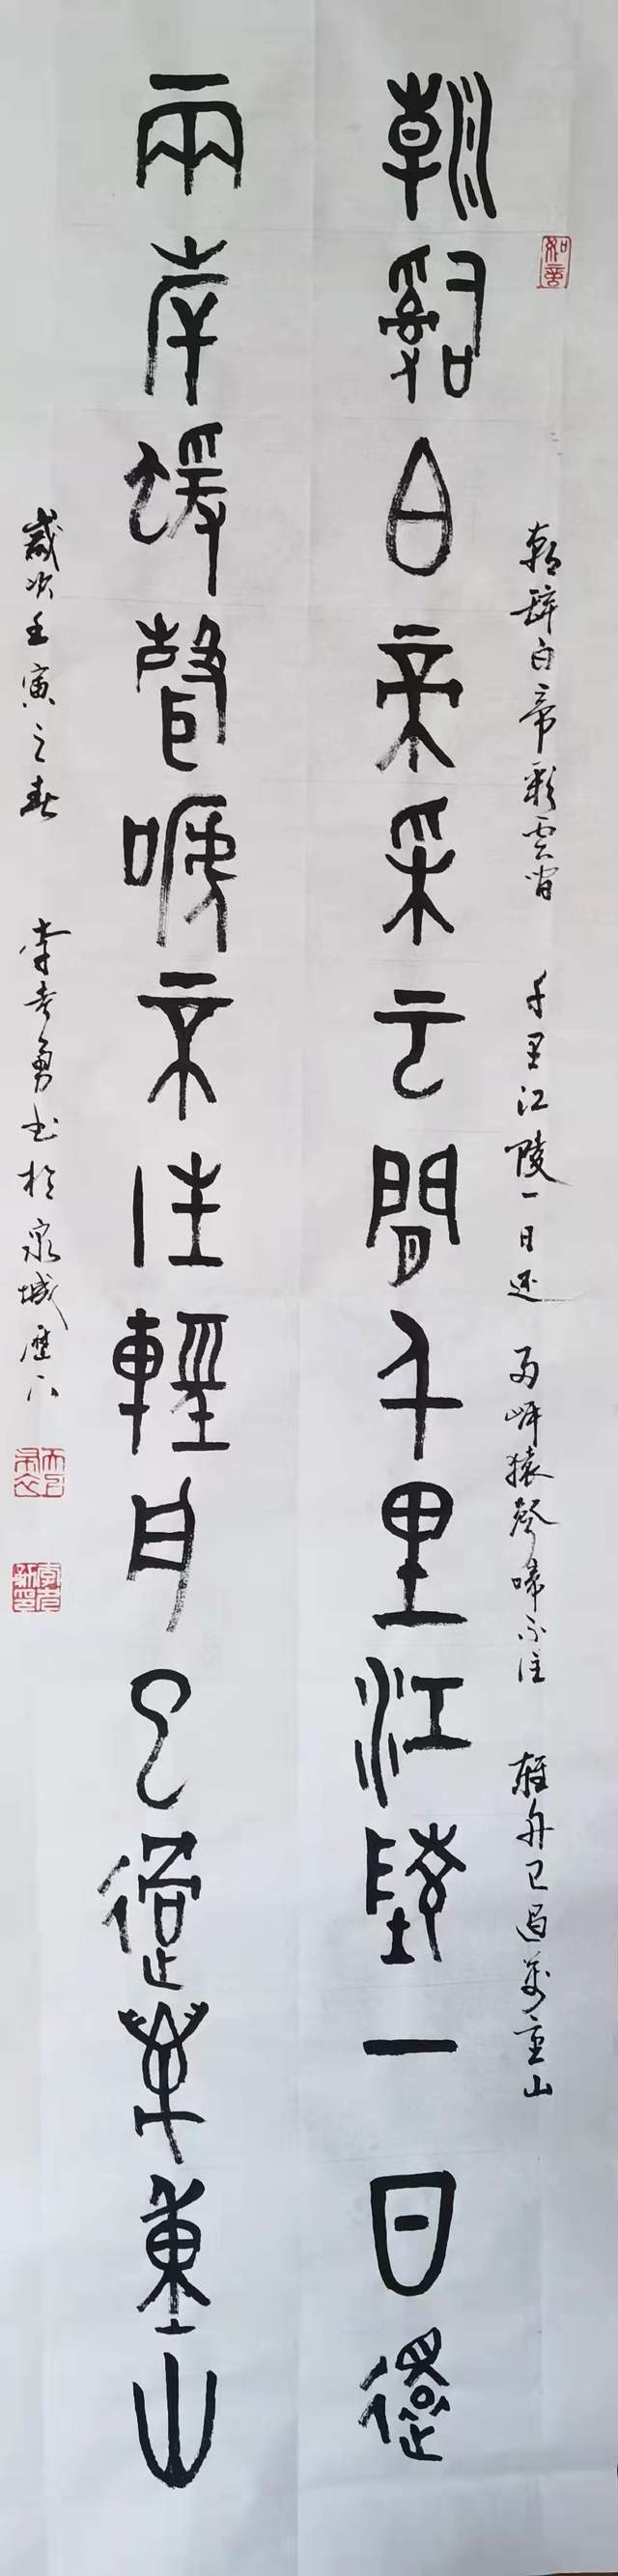 如意
朝辭白帝彩雲間 千里江陵一日还 两岸猿聲啼不住 輕舟已過萬重山
朝辝白帝采云間千里江陵一日還
兩岸猨聲嗁不住輕舟已過萬重山
歲次壬寅之春 李孝勇书於泉城歷下